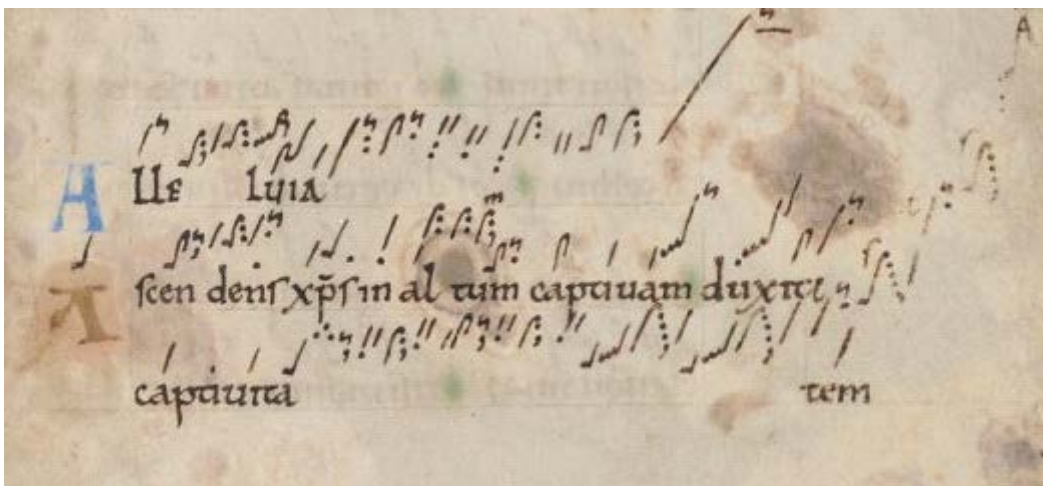 A
ALLE LUIA
Ascen dens xp̄s in al tum captiuam duxit
captiuita tem